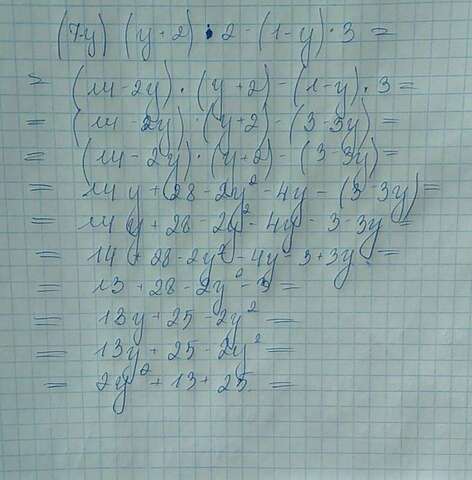 (7-y) (y+2) · 2 - (1-y) · 3 =
= (14-2y) · (y+2) - (1-y) · 3 =
= (14-2y) · (y+2) - (3-3y) =
= (14-2y) · (y+2) - (3-3y) =
= 14y + 28 - 2y² - 4y - (3-3y) =
= 14y + 28 - 2y² - 4y - 3 - 3y =
= 14 + 28 - 2y² - 4y - 3 + 3y =
= 13 + 28 - 2y² - 3 =
= 13y + 25 - 2y² =
= 13y + 25 - 2y² =
= 2y² + 13 + 25 =